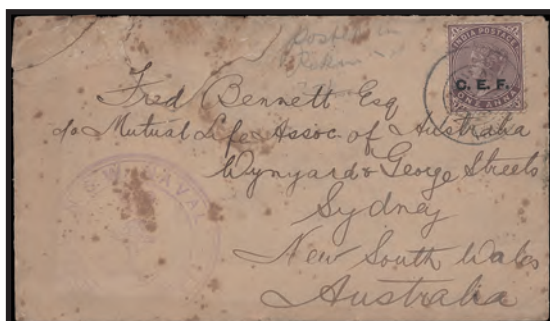 Posted in
Pekin
INDIA POSTAGE
C. E. F.
ONE ANNA
Fred Bennett Esq
c/o Mutual Life Assoc. of Australia
Wynyard & George Streets
Sydney
New South Wales
Australia
N.S.W. NAVAL